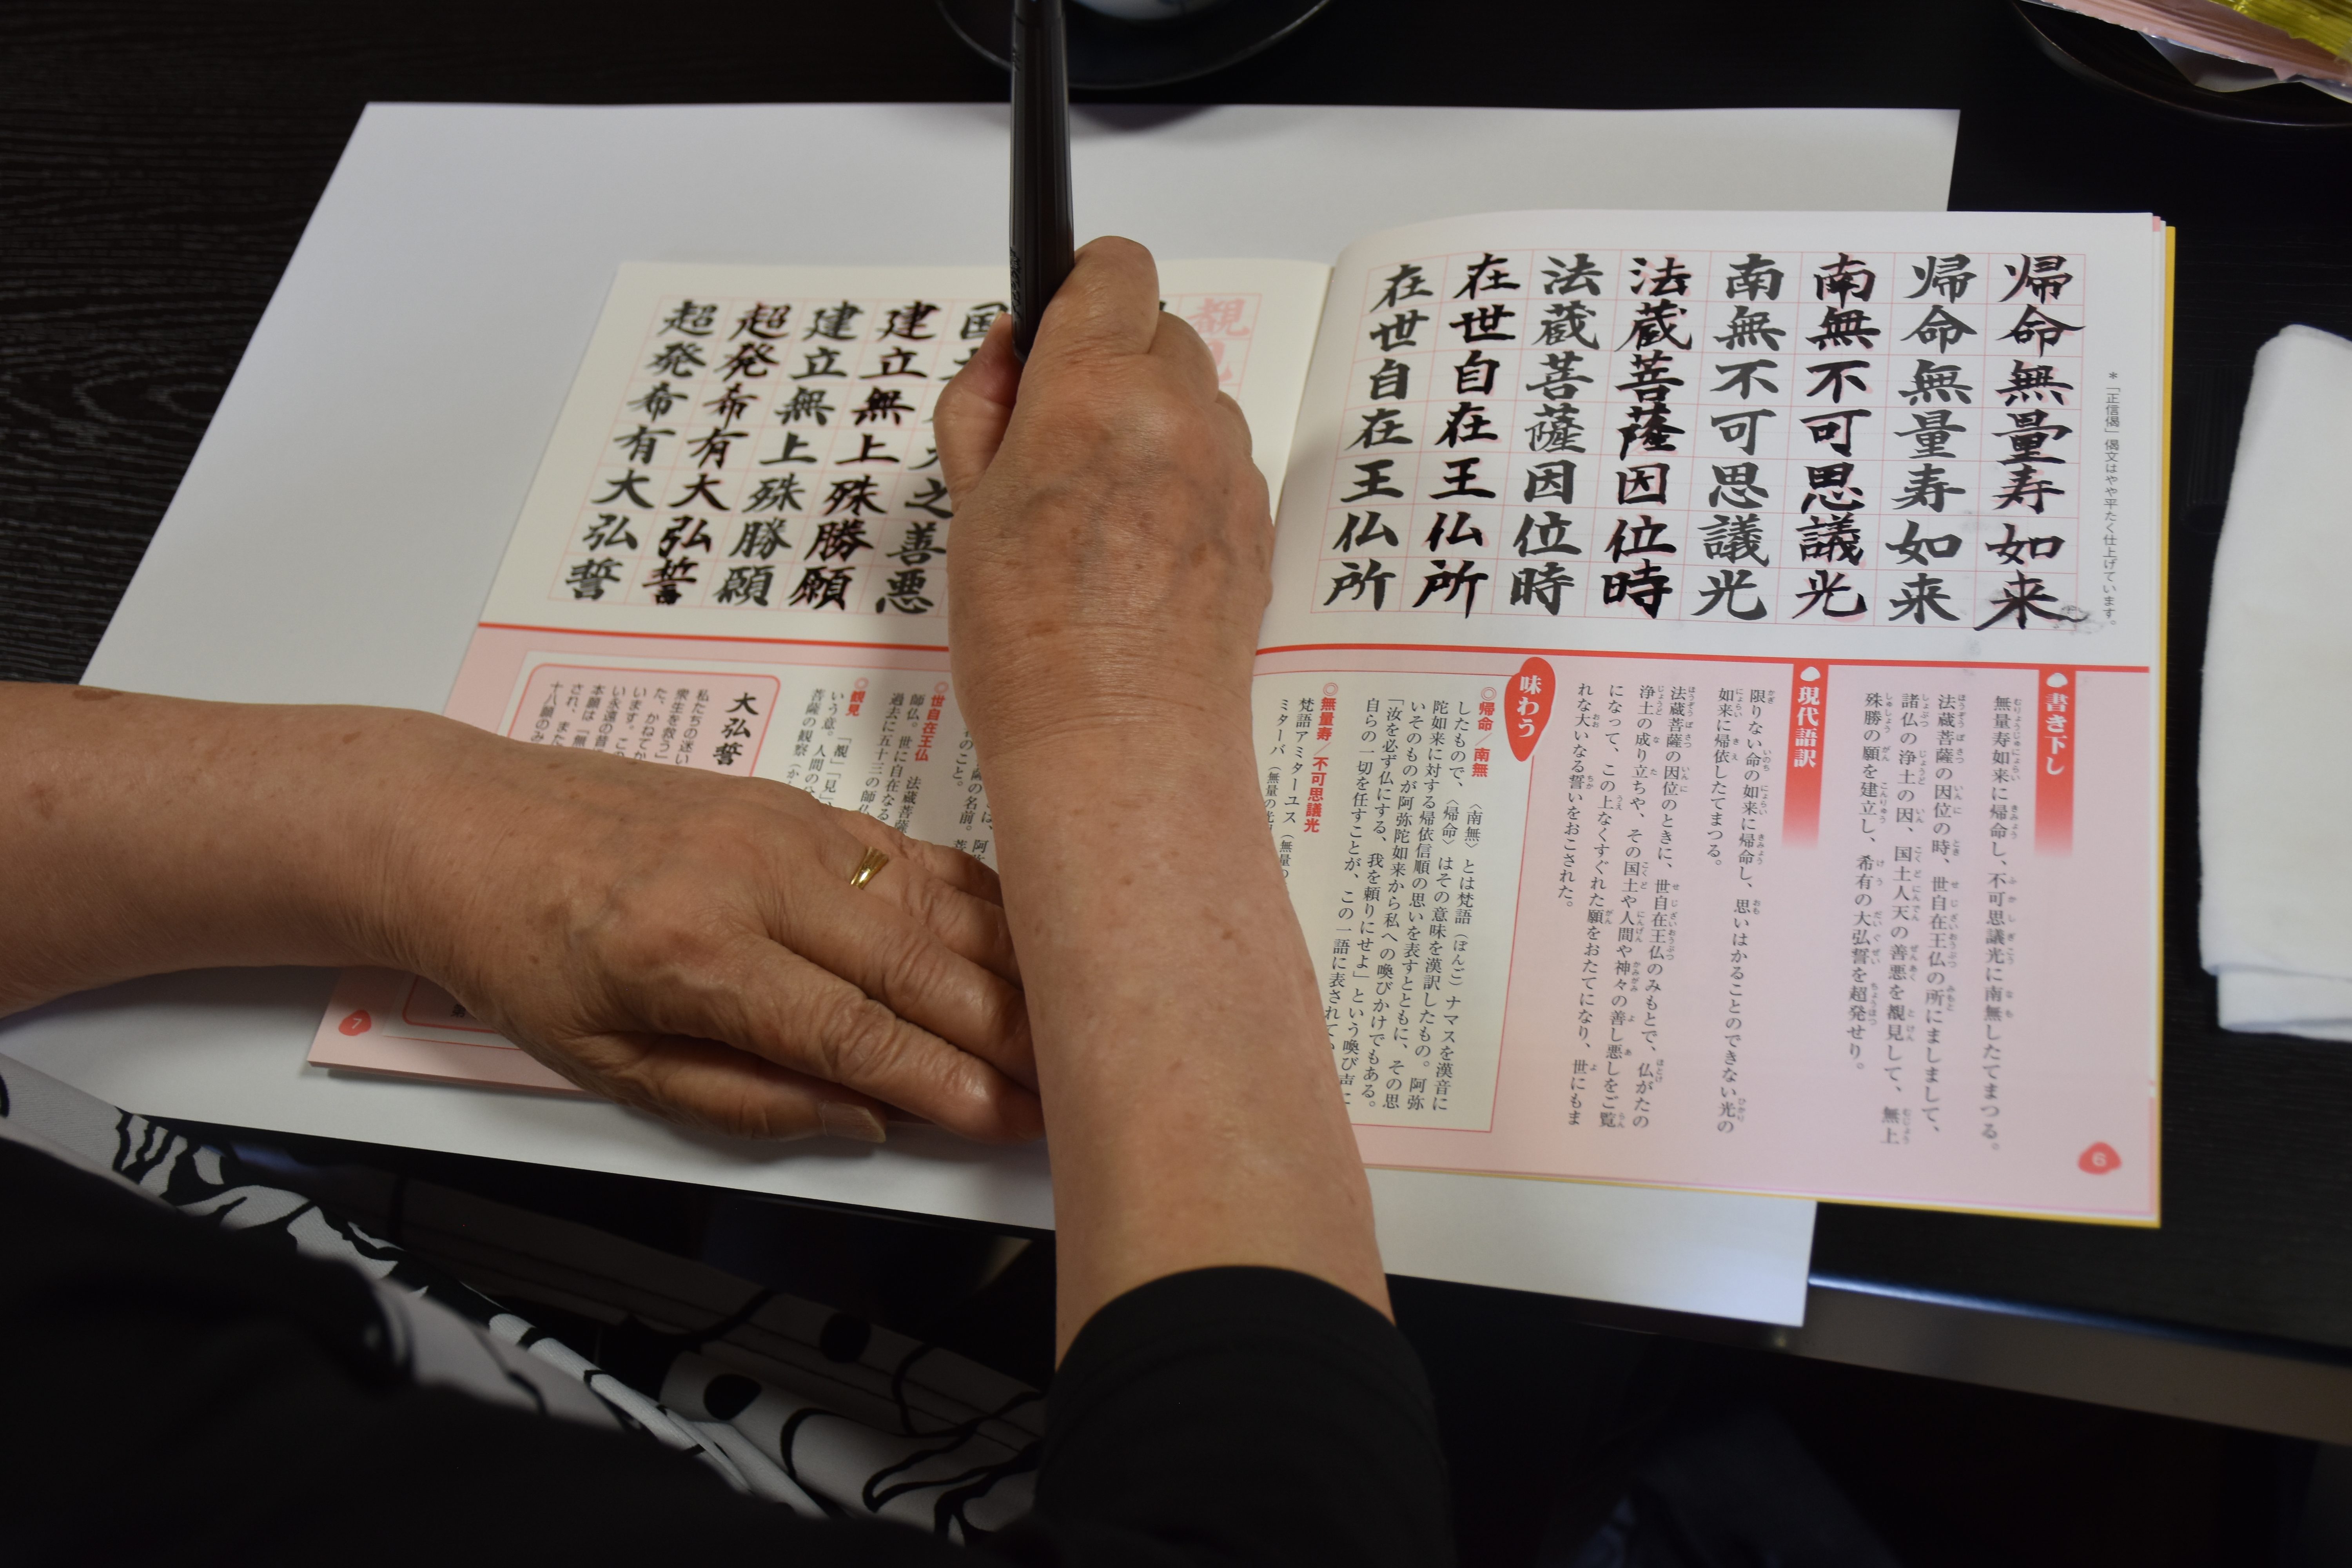 ＊「正信偈」偈文はやや平たく仕上げています。
帰命無量寿如来
帰命無量寿如来
南無不可思議光
南無不可思議光
法蔵菩薩因位時
法蔵菩薩因位時
在世自在王仏所
在世自在王仏所
書き下し
無量寿如来に帰命し、不可思議光に南無したてまつる。
法蔵菩薩の因位の時、世自在王仏の所にましまして、
諸仏の浄土の因、国土人天の善悪を覩見して、無上
殊勝の願を建立し、希有の大弘誓を超発せり。
現代語訳
限りない命の如来に帰命し、思いはかることのできない光の
如来に帰依したてまつる。
法蔵菩薩の因位のときに、世自在王仏のみもとで、仏がたの
浄土の成り立ちや、その国土や人間や神々の善し悪しをご覧
になって、この上なくすぐれた願をおたてになり、世にもま
れな大いなる誓いをおこされた。
味わう
◎帰命／南無 〈南無〉とは梵語（ぼんご）ナマスを漢音に
したもので、〈帰命〉はその意味を漢訳したもの。阿弥
陀如来に対する帰依信順の思いを表すとともに、その思
いそのものが阿弥陀如来から私への喚びかけでもある。
「汝を必ず仏にする、我を頼りにせよ」という喚び声に
自らの一切を任すことが、この一語に表されて
◎無量寿／不可思議光
梵語アミターユス（無量の
ミターバ（無量の光
6
覩見
国
之善悪
建立無上殊勝願
建立無上殊勝願
超発希有大弘誓
超発希有大弘誓
は、阿弥
薩の名前。菩
のこと。
◎世自在王仏 法蔵菩薩
師仏。世に自在なる
過去に五十三の師仏
◎覩見 「覩」「見」
いう意。人間の
菩薩の観察（か
大弘誓
私たちの迷い
衆生を救う」
た、かねてか
います。この
い永遠の昔
本願は「無
され、また
十八願のみ
7